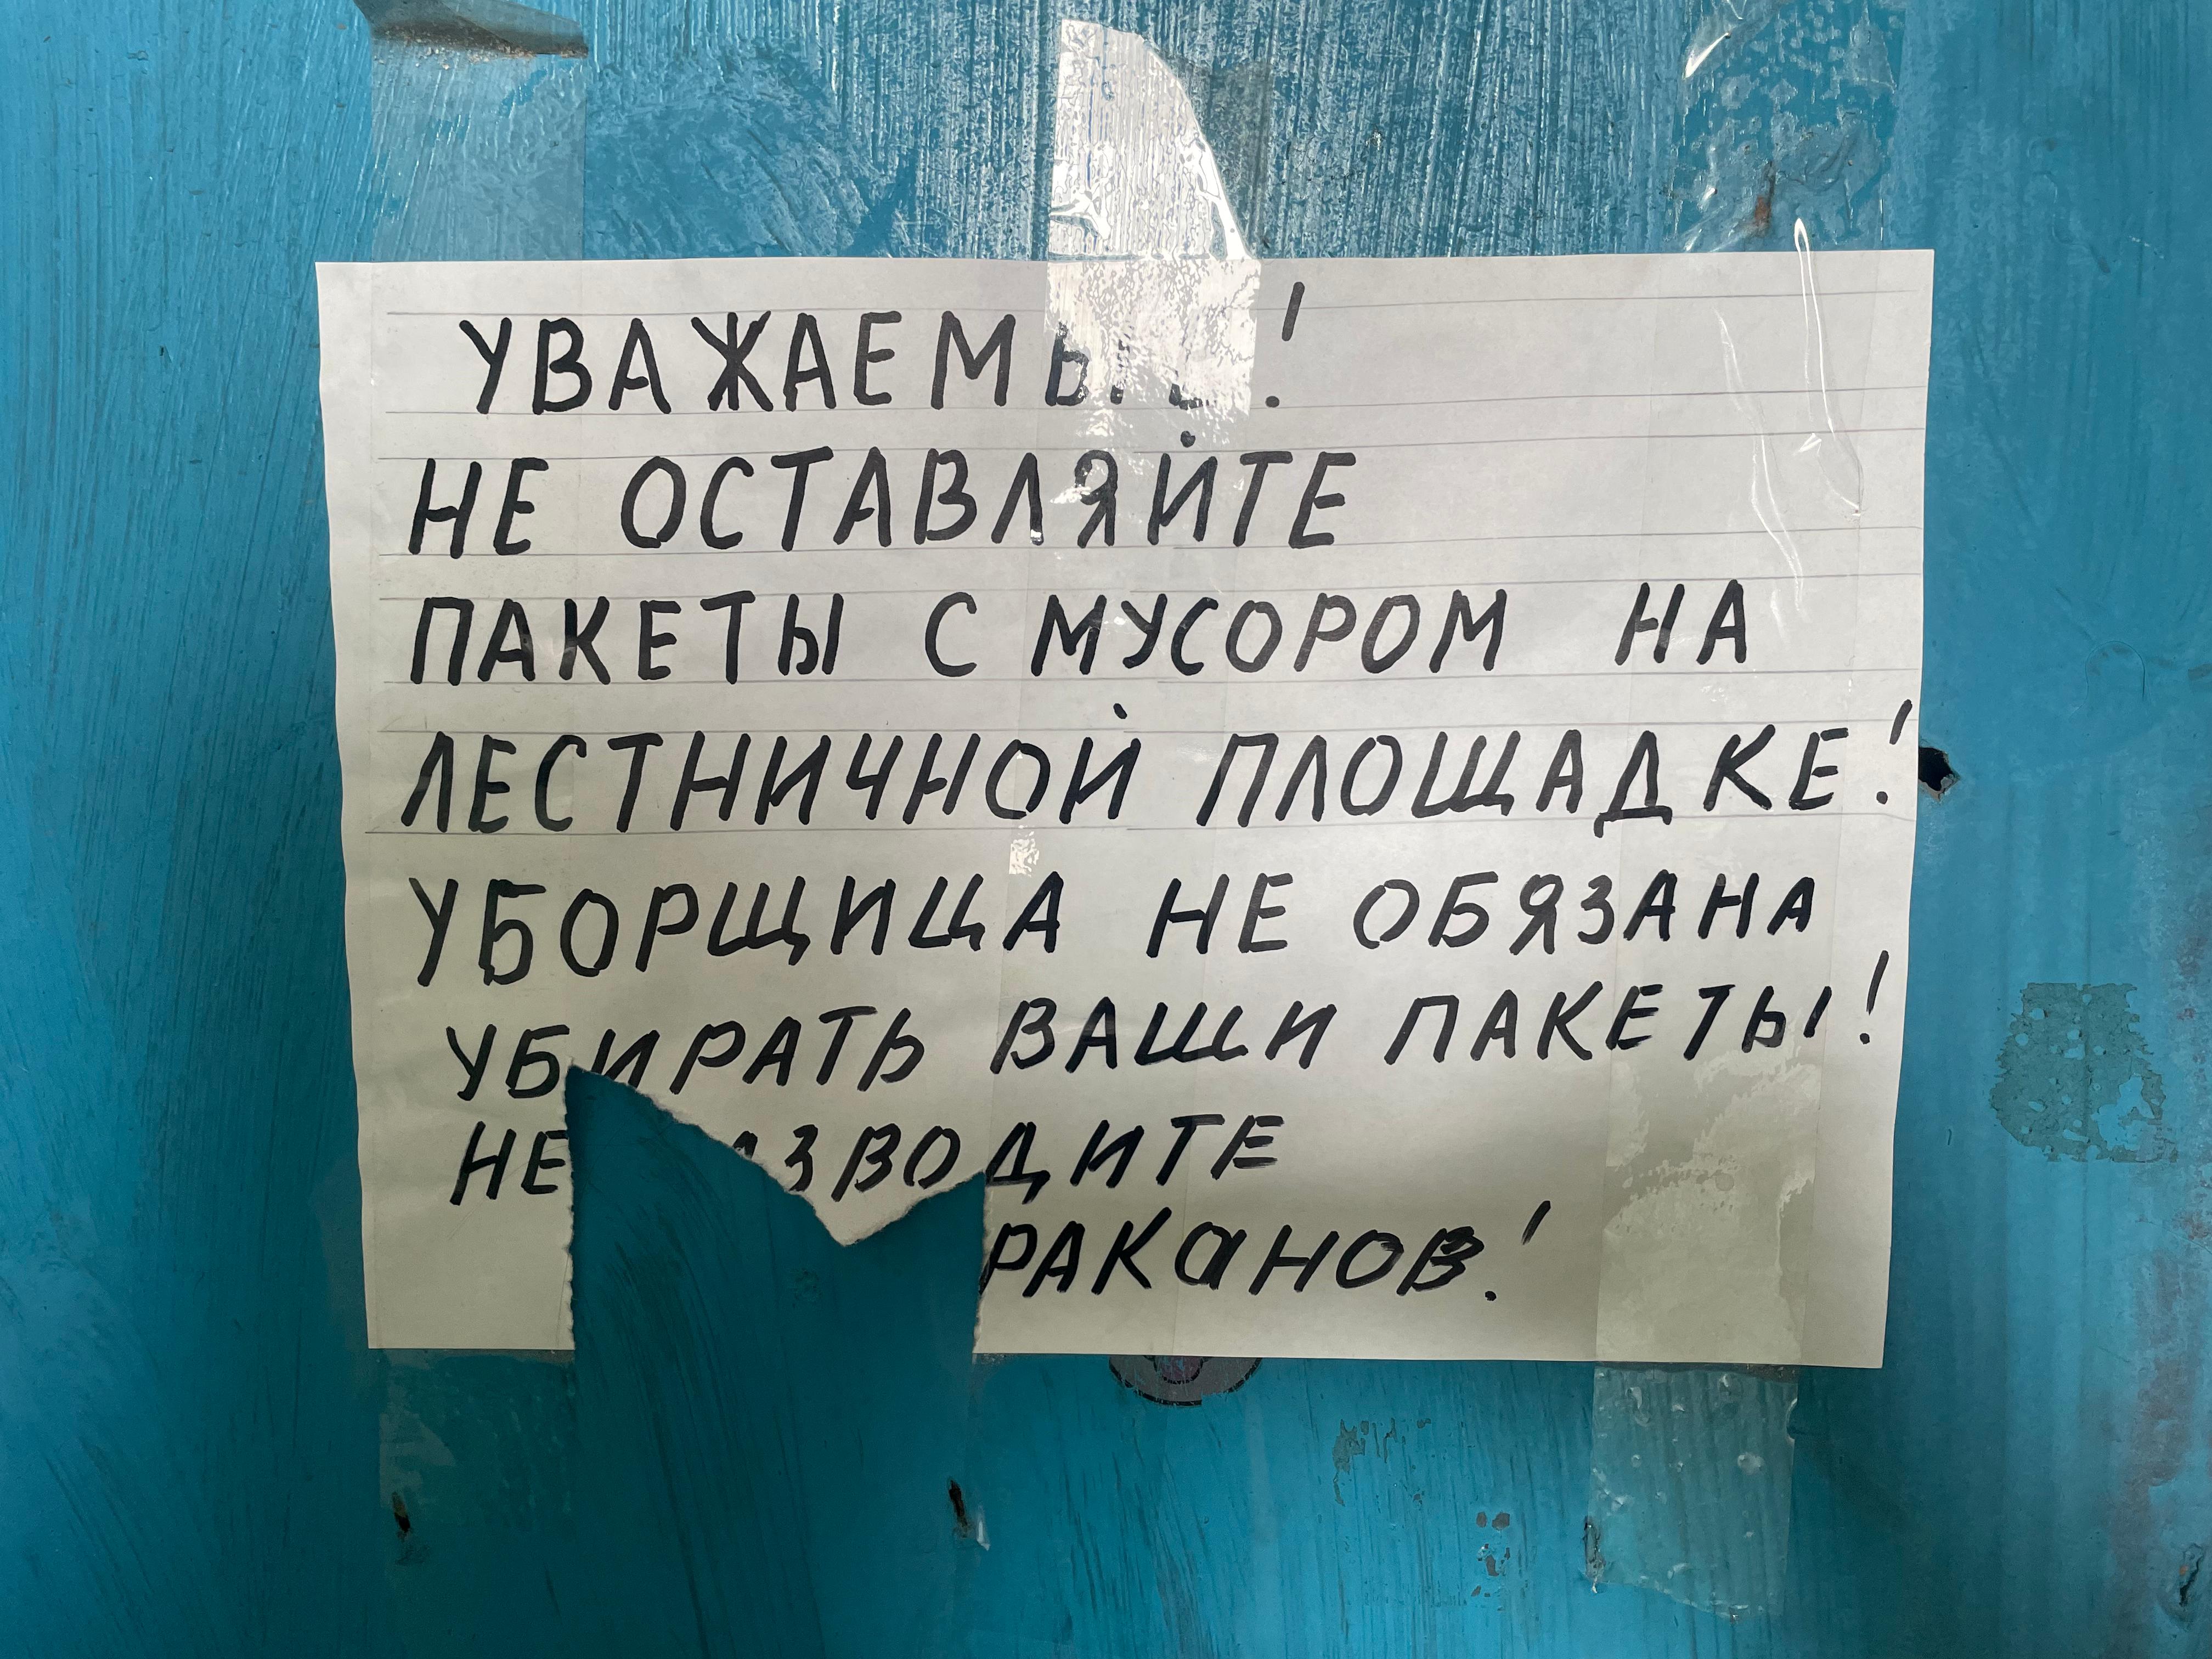 УВАЖАЕМЫЕ!
НЕ ОСТАВЛЯЙТЕ
ПАКЕТЫ С МУСОРОМ НА
ЛЕСТНИЧНОЙ ПЛОЩАДКЕ!
УБОРЩИЦА НЕ ОБЯЗАНА
УБИРАТЬ ВАШИ ПАКЕТЫ!
НЕ АЗВОДИТЕ
РАКАНОВ!